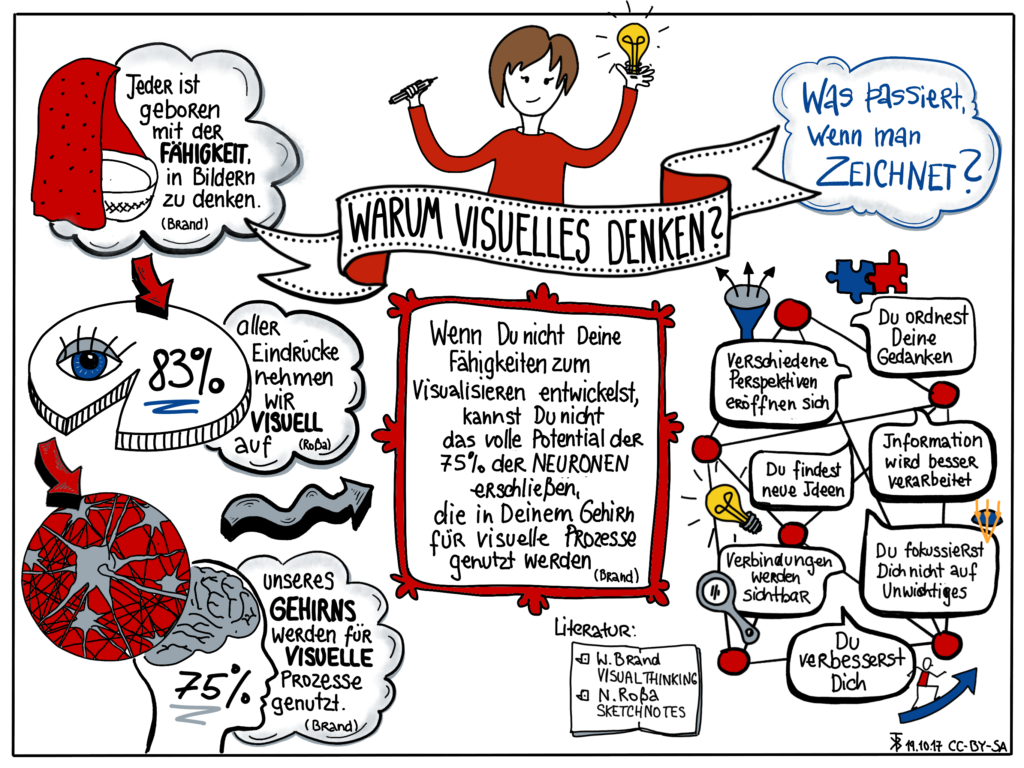 WARUM VISUELLES DENKEN?
Jeder ist
geboren
mit der
FÄHIGKEIT,
in Bildern
zu denken.
(Brand)
83%
aller
Eindrücke
nehmen
wir
VISUELL
auf (Roßa)
75%
unseres
GEHIRNS
werden für
VISUELLE
Prozesse
genutzt.
(Brand)
Wenn Du nicht Deine
Fähigkeiten zum
Visualisieren entwickelst,
kannst Du nicht
das volle Potential der
75% der NEURONEN
erschließen,
die in Deinem Gehirn
für visuelle Prozesse
genutzt werden
(Brand)
Literatur:
W. Brand
VISUAL THINKING
N. Roßa
SKETCHNOTES
Was passiert,
wenn man
ZEICHNET?
Du ordnest
Deine
Gedanken
Verschiedene
Perspektiven
eröffnen sich
Information
wird besser
verarbeitet
Du findest
neue Ideen
Verbindungen
werden
sichtbar
Du fokussierst
Dich nicht auf
Unwichtiges
Du
verbesserst
Dich
19.10.17 CC-BY-SA